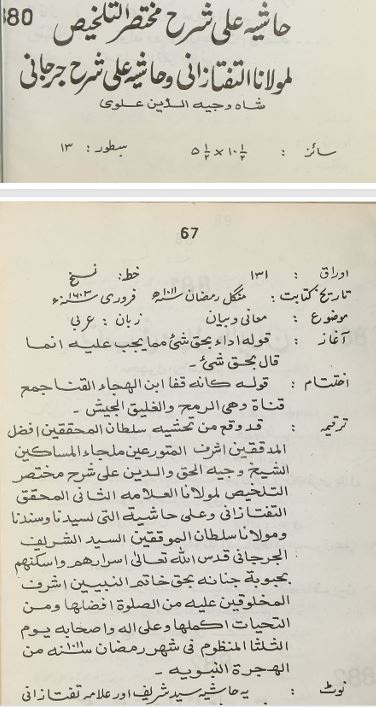 880
حاشیه علی شرح مختصر التلخیص
لمولانا التفتازانی وحاشیه علی شرح جرجانی
شاه وجیه الدین علوی
سائز : ۱۰ ۱/۲ × ۵ ۱/۲ سطور : ۱۳
67
اوراق : ۱۳۱ خط : نسخ
تاریخ کتابت : منگل رمضان ۱۰۱۱ھ فروری ۱۶۰۳ء
موضوع : معانی و بیان زبان : عربی
آغاز : قوله اداء بحق شئ مما یجب علیه انما
قال بحق شئ ۔
اختتام : قوله کانه قفا ابن الهجاء القنا جمع
قناة وهی الرمح والغلیق الجیش ۔
ترقیمه : قد وقع من تحشیه سلطان المحققین افضل
المدققین اشرف المتورعین ملجاء المساکین
الشیخ وجیه الحق والدین علی شرح مختصر
التلخیص لمولانا العلامه الثانی المحقق
التفتازانی وعلی حاشیة التی لسیدنا وسندنا
ومولانا سلطان الموفقین السید الشریف
الجرجانی قدس الله تعالی اسرارهم واسکنهم
بحبوبة جنانه بحق خاتم النبیین اشرف
المخلوقین علیه من الصلوة افضلها ومن
التحیات اکملها وعلی اله واصحابه یوم
الثلثا المنظوم فی شهر رمضان سنه ۱۰۱۱ من
الهجرة النبویه ۔
نوٹ : یه حاشیه سید شریف اور علامه تفتازانی